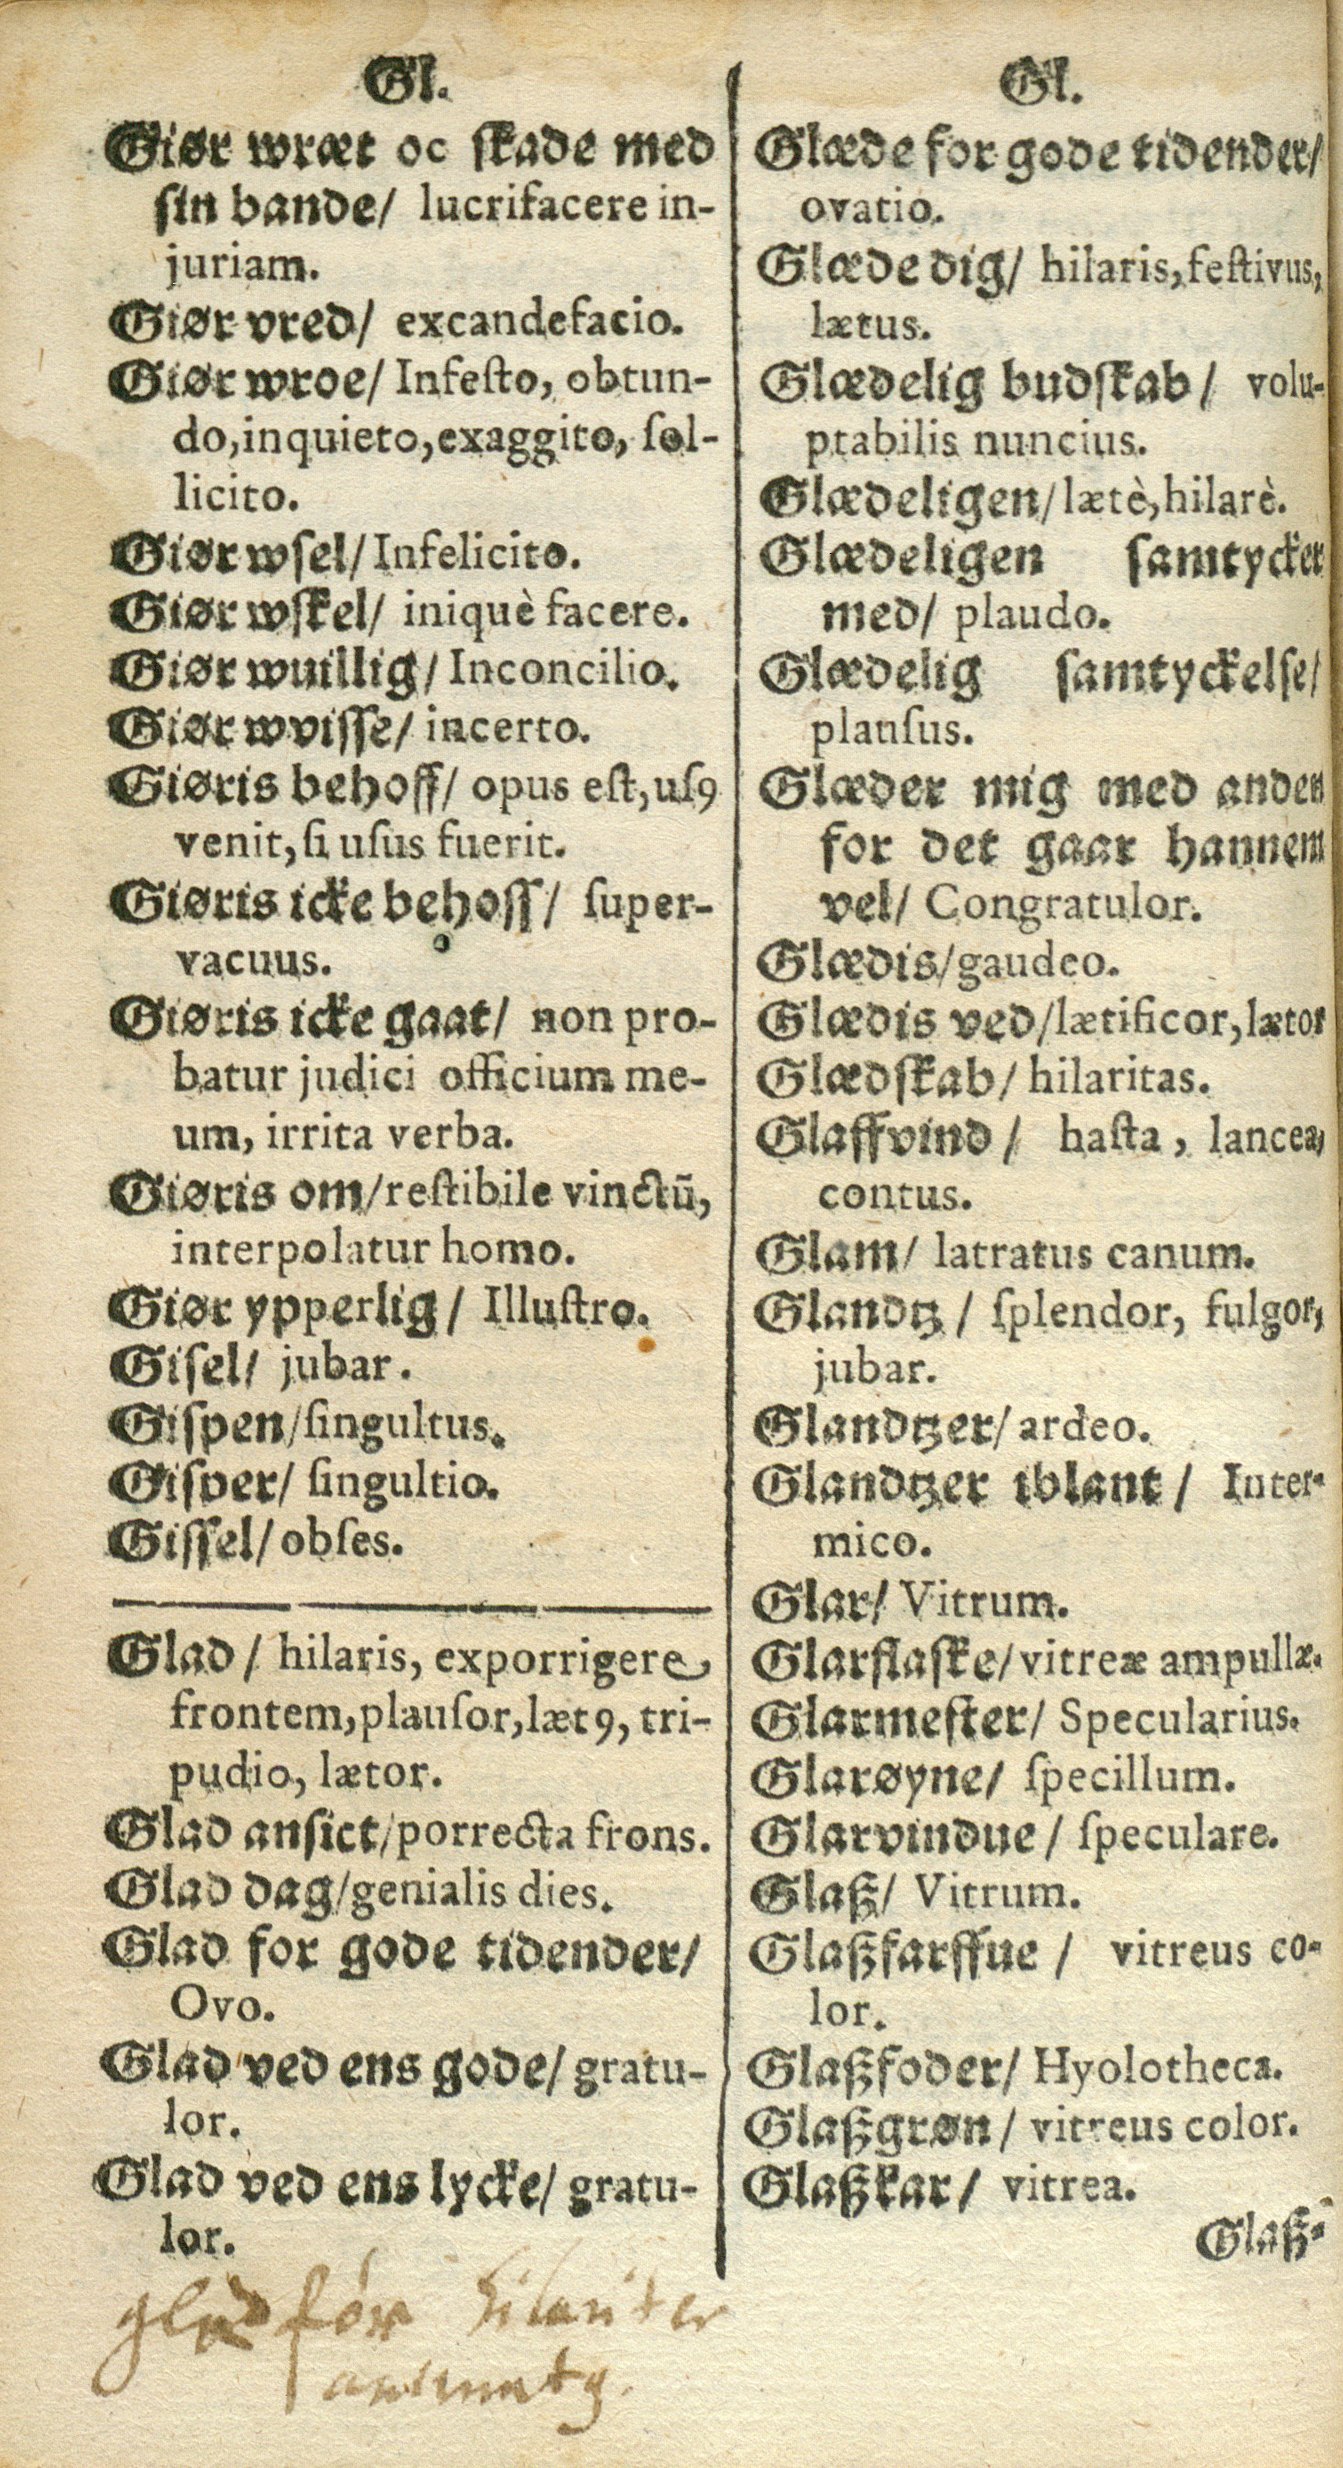 Gl.
Giør wræt oc ſkade med
ſin bande/ lucrifacere in-
juriam.
Giør vred/ excandefacio.
Giør wroe/ Infeſto, obtun-
do,inquieto,exaggito, ſol-
licito.
Giør wſel/ Infelicito.
Giør wſkel/ iniquè facere.
Giør wuillig/ Inconcilio.
Giør wviſſe/ incerto.
Giøris behoff/ opus eſt,uſꝰ
venit, ſi uſus fuerit.
Giøris icke behoff/ ſuper-
vacuus.
Giøris icke gaat/ non pro-
batur judici officium me-
um, irrita verba.
Giøris om/ reſtibile vinctũ,
interpolatur homo.
Giør ypperlig/ Illuſtro.
Giſel/ jubar.
Giſpen/ſingultus.
Giſper/ ſingultio.
Giſſel/ obſes.
Glad/ hilaris, exporrigere
frontem,plauſor,lætꝰ, tri-
pudio, lætor.
Glad anſict/porrecta frons.
Glad dag/genialis dies.
Glad for gode tidender/
Ovo.
Glad ved ens gode/ gratu-
lor.
Glad ved ens lycke/ gratu-
lor.
Gl.
Glæde for gode tidender/
ovatio.
Glæde dig/ hilaris,feſtivus,
lætus.
Glædelig budſkab/ volu-
ptabilis nuncius.
Glædeligen/ lætè,hilarè.
Glædeligen ſamtycker
med/ plaudo.
Glædelig ſamtyckelſe/
planſus.
Glæder mig med anden
for det gaar hannem
vel/ Congratulor.
Glædis/gaudeo.
Glædis ved/lætificor,lætor
Glædſkab/ hilaritas.
Glaffvind/ haſta, lancea,
contus.
Glam/ latratus canum.
Glandtz/ ſplendor, fulgor,
jubar.
Glandtzer/ ardeo.
Glandtzer iblant/ Inter-
mico.
Glar/ Vitrum.
Glarflaſke/vitreæ ampullæ.
Glarmeſter/ Specularius.
Glarøyne/ ſpecillum.
Glarvindue/ ſpeculare.
Glaß/ Vitrum.
Glaßfarffue/ vitreus co-
lor.
Glaßfoder/ Hyolotheca.
Glaßgrøn/ vitreus color.
Glaßkar/ vitrea.
Glaß-
hilariter